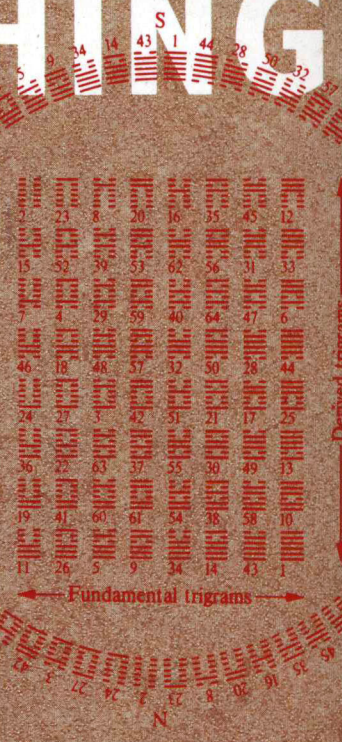 HING
S
5 9 34 14 43 1 44 28 50 32 57
2 23 8 20 16 35 45 12
15 52 39 53 62 56 31 33
7 4 29 59 40 64 47 6
46 18 48 57 32 50 28 44
24 27 3 42 51 21 17 25
36 22 63 37 55 30 49 13
19 41 60 61 54 38 58 10
11 26 5 9 34 14 43 1
Fundamental trigrams
42 3 27 24 2 23 8 20 16 35 45
N